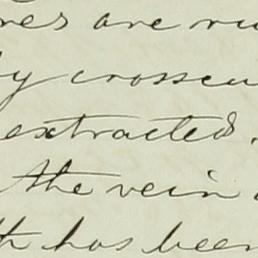 res are ru
y crosscu
extracted.
the vein
th has been